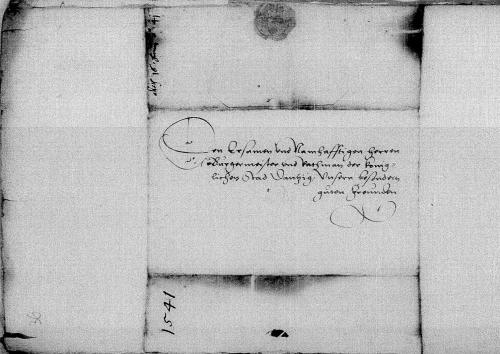 Den Ersamen und Namhafftigen herren
Burgermeister und Rathman der König-
lichen Stad Dantzig Unsern besondern
guten freunden
1541